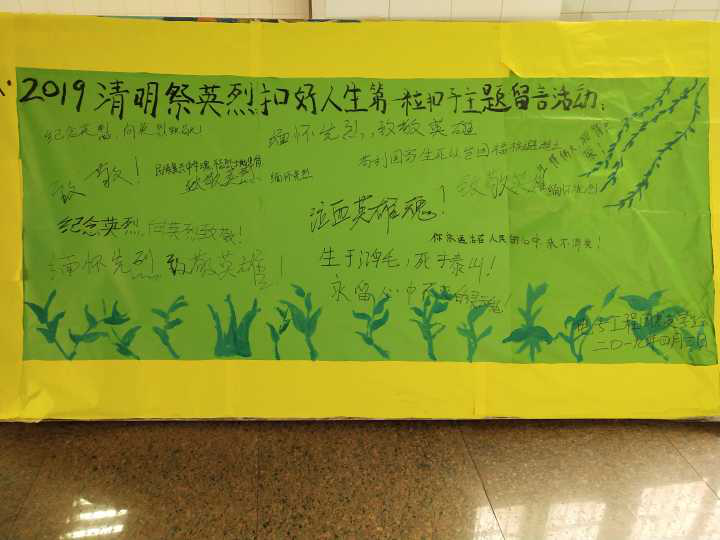 2019清明祭英烈扣好人生第一粒扣子主题留言活动:
纪念英烈,向英烈致敬!
缅怀先烈,致敬英雄
致敬!
致敬英烈
缅怀先烈
苟利国家生死以岂因祸福避趋之
致敬英雄
缅怀先烈
泣血英雄魂!
纪念英烈,向英烈致敬!
你永远活在人民的心中永不消失!
缅怀先烈 致敬英雄!
生于鸿毛,死于泰山!
永留心中
二〇一九年四月三日